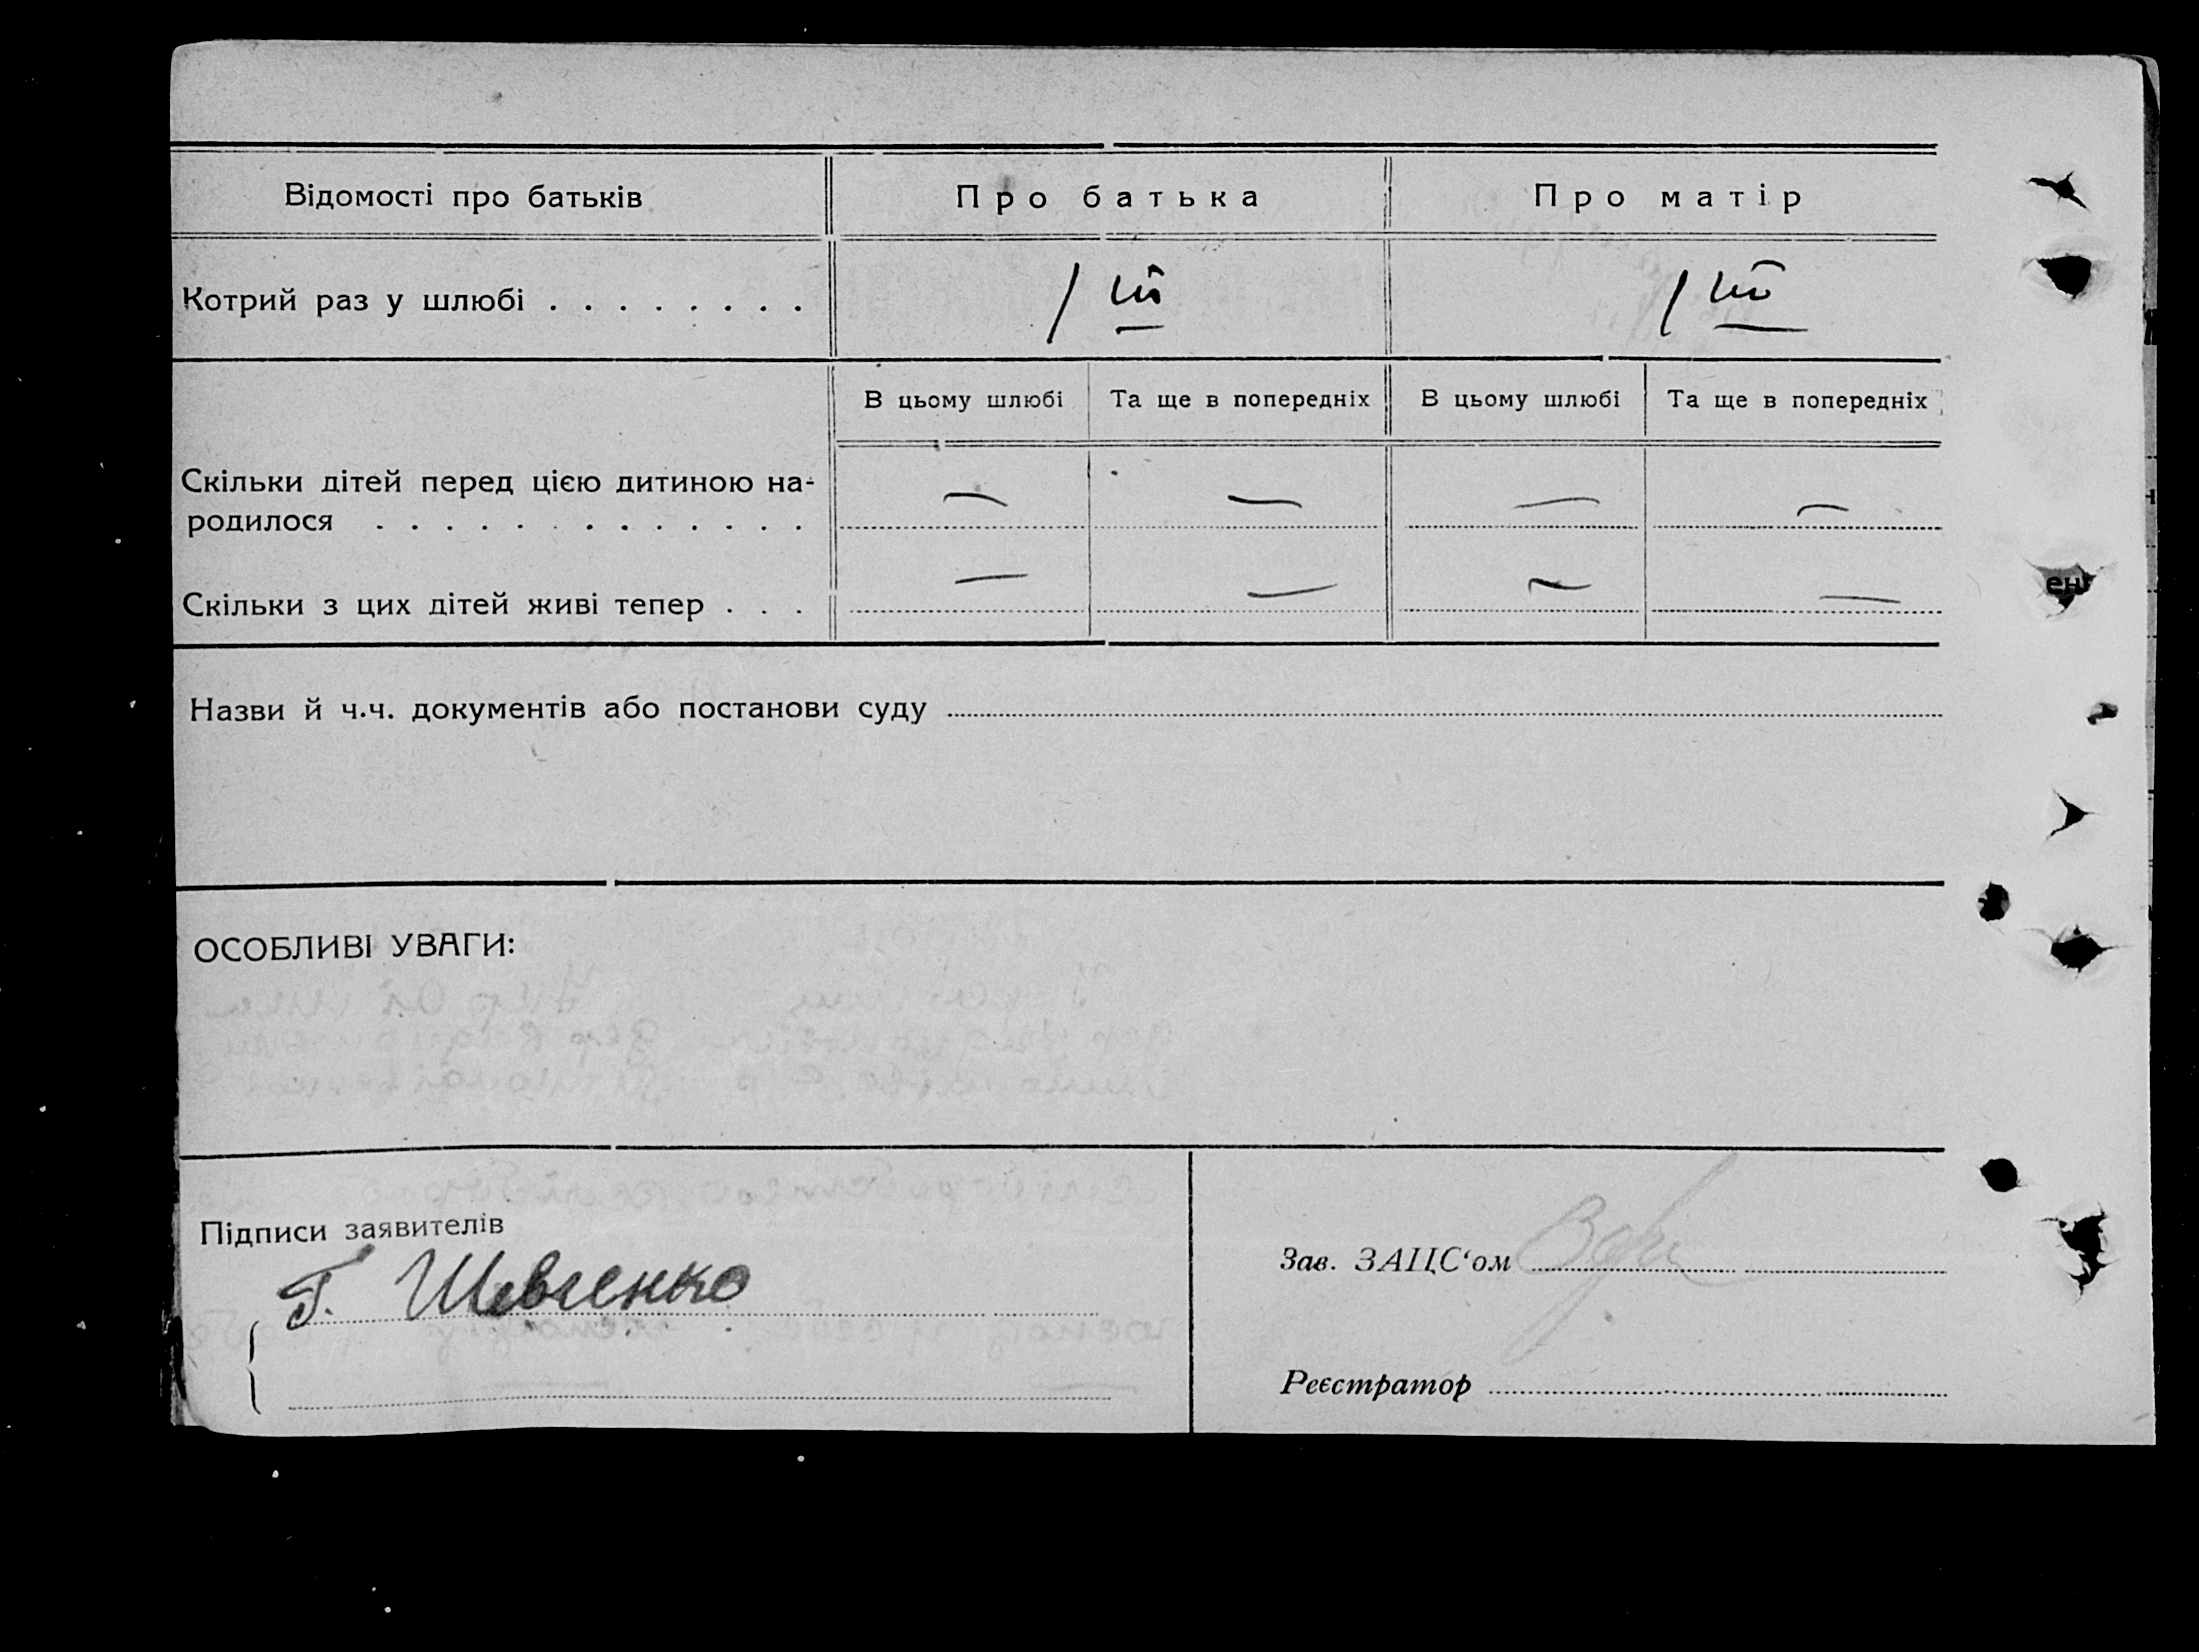 Відомості про батьків
Про батька
Про матір
Котрий раз у шлюбі . . . . . . . .
1
1
В цьому шлюбі
Та ще в попередніх
В цьому шлюбі
Та ще в попередніх
Скільки дітей перед цією дитиною на-
родилося . . . . . . . . . . . . .
— — — —
Скільки з цих дітей живі тепер . . .
— — — —
Назви й ч.ч. документів або постанови суду
ОСОБЛИВІ УВАГИ:
Підписи заявителів
Г. Шевченко
Зав. ЗАЦС‘ом
Реєстратор